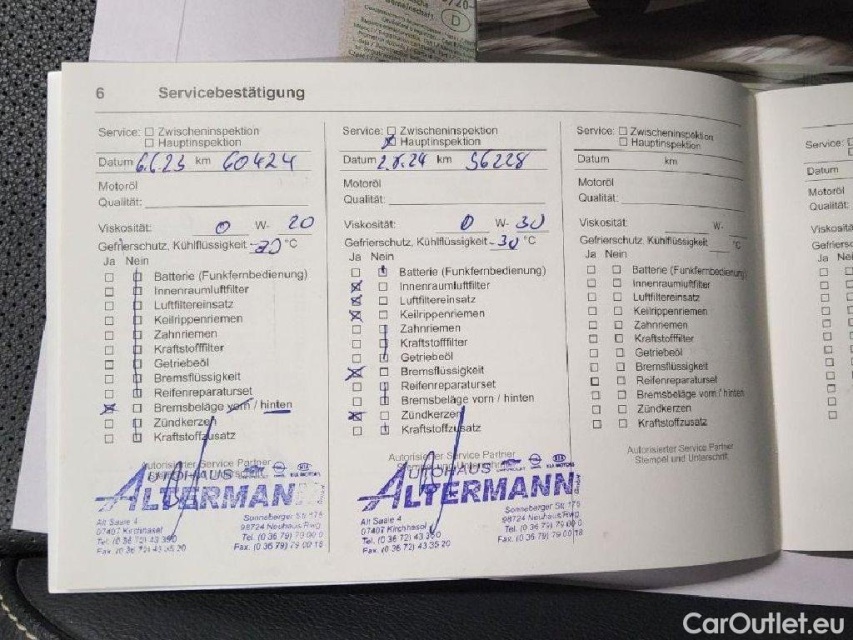 6 Servicebestätigung
Service: Zwischeninspektion
Hauptinspektion
Datum 6.6.23 km 60424
Motoröl
Qualität:
Viskosität: 0 W- 20
Gefrierschutz, Kühlflüssigkeit -30 °C
Ja Nein
Batterie (Funkfernbedienung)
Innenraumluftfilter
Luftfiltereinsatz
Keilrippenriemen
Zahnriemen
Kraftstofffilter
Getriebeöl
Bremsflüssigkeit
Reifenreparaturset
Bremsbeläge vorn / hinten
Zündkerzen
Kraftstoffzusatz
Autorisierter Service Partner
AUTOHAUS
ALTERMANN
Alt Saale 4
07407 Kirchhasel
Tel. (0 36 72) 43 350
Fax. (0 36 72) 43 35 20
Sonneberger Str. 175
98724 Neuhaus/Rwg.
Tel. (0 36 79) 79 00 0
Fax. (0 36 79) 79 00 18
Service: Zwischeninspektion
Hauptinspektion
Datum 2.8.24 km 56228
Motoröl
Qualität:
Viskosität: 0 W- 30
Gefrierschutz, Kühlflüssigkeit -30 °C
Ja Nein
Batterie (Funkfernbedienung)
Innenraumluftfilter
Luftfiltereinsatz
Keilrippenriemen
Zahnriemen
Kraftstofffilter
Getriebeöl
Bremsflüssigkeit
Reifenreparaturset
Bremsbeläge vorn / hinten
Zündkerzen
Kraftstoffzusatz
Autorisierter Service Partner
Stempel und Unterschrift
AUTOHAUS
ALTERMANN
Alt Saale 4
07407 Kirchhasel
Tel. (0 36 72) 43 350
Fax. (0 36 72) 43 35 20
Sonneberger Str. 175
98724 Neuhaus/Rwg.
Tel. (0 36 79) 79 00 0
Fax. (0 36 79) 79 00 18
Service: Zwischeninspektion
Hauptinspektion
Datum km
Motoröl
Qualität:
Viskosität: W-
Gefrierschutz, Kühlflüssigkeit °C
Ja Nein
Batterie (Funkfernbedienung)
Innenraumluftfilter
Luftfiltereinsatz
Keilrippenriemen
Zahnriemen
Kraftstofffilter
Getriebeöl
Bremsflüssigkeit
Reifenreparaturset
Bremsbeläge vorn / hinten
Zündkerzen
Kraftstoffzusatz
Autorisierter Service Partner
Stempel und Unterschrift
Service:
Datum
Motoröl
Qualität:
Ja
CarOutlet.eu